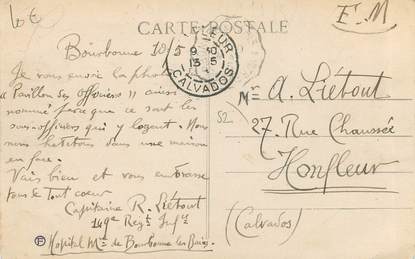 10€
CARTE POSTALE
F.M
HONFLEUR
CALVADOS
Bourbonne 10/5
Je vous envoie la photo
"Pavillon des officiers" ainsi
nommé parce que ce sont les
sous-officiers qui y logent. Nous
nous habitons dans une maison
en face.
Vais bien et vous embrasse
tous de tout coeur
Capitaine R. Liétout
149e Regt Infie
Hopital Mre de Bourbonne les Bains
52
Mr A. Liétout
27. Rue Chaussée
Honfleur
(Calvados)